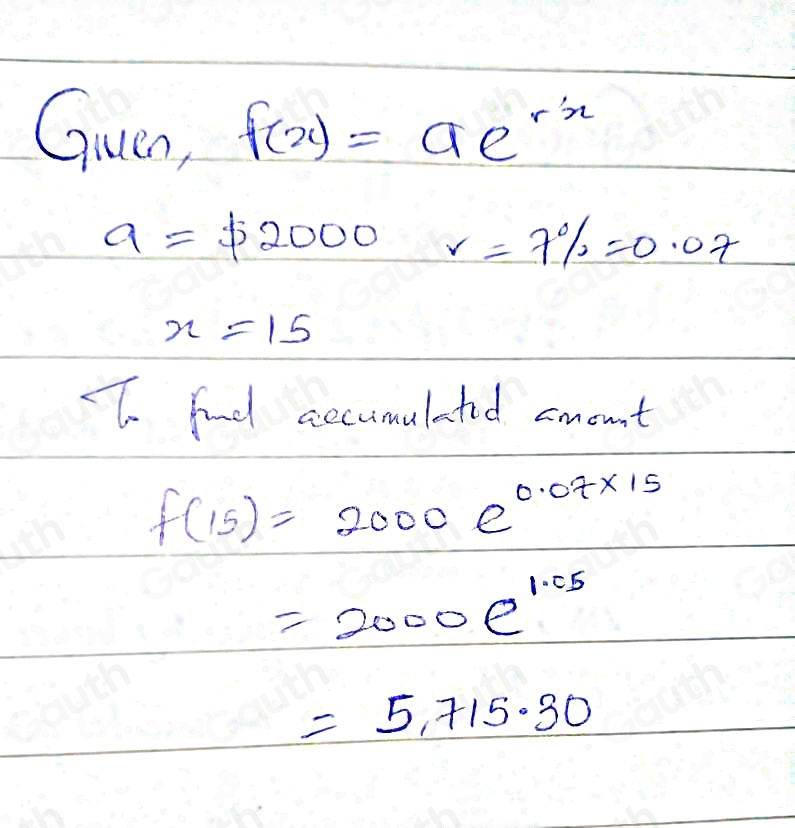 Given, f(x) = ae^{r·x}
a = $2000 r = 7% = 0.07
x = 15
To find accumulated amount
f(15) = 2000 e^{0.07×15}
= 2000 e^{1.05}
= 5,715.30